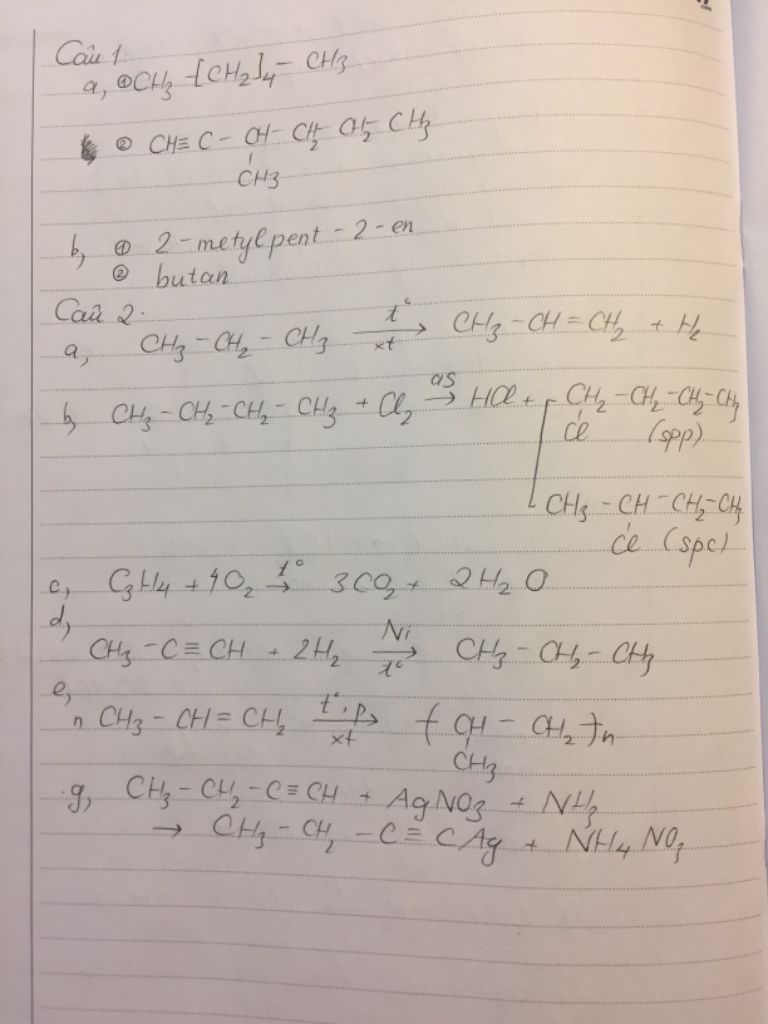 Câu 1.
a, ① CH3 -[CH2]4- CH3
② CH≡ C - CH- CH2- CH2- CH3
CH3
b, ① 2-metylpent-2-en
② butan
Câu 2.
a, CH3 - CH2 - CH3 t° xt → CH3 - CH = CH2 + H2
b, CH3 - CH2 - CH2 - CH3 + Cl2 as → HCl + CH2 - CH2 - CH2 - CH3
Cl (spp)
CH3 - CH - CH2 - CH3
Cl (spc)
c, C3H4 + 4O2 t° → 3CO2 + 2H2O
d,
CH3 - C ≡ CH + 2H2 Ni t° → CH3 - CH2 - CH3
e,
n CH3 - CH = CH2 t°, p xt → ( CH - CH2 )n
CH3
g, CH3 - CH2 - C ≡ CH + AgNO3 + NH3
→ CH3 - CH2 - C ≡ CAg + NH4NO3